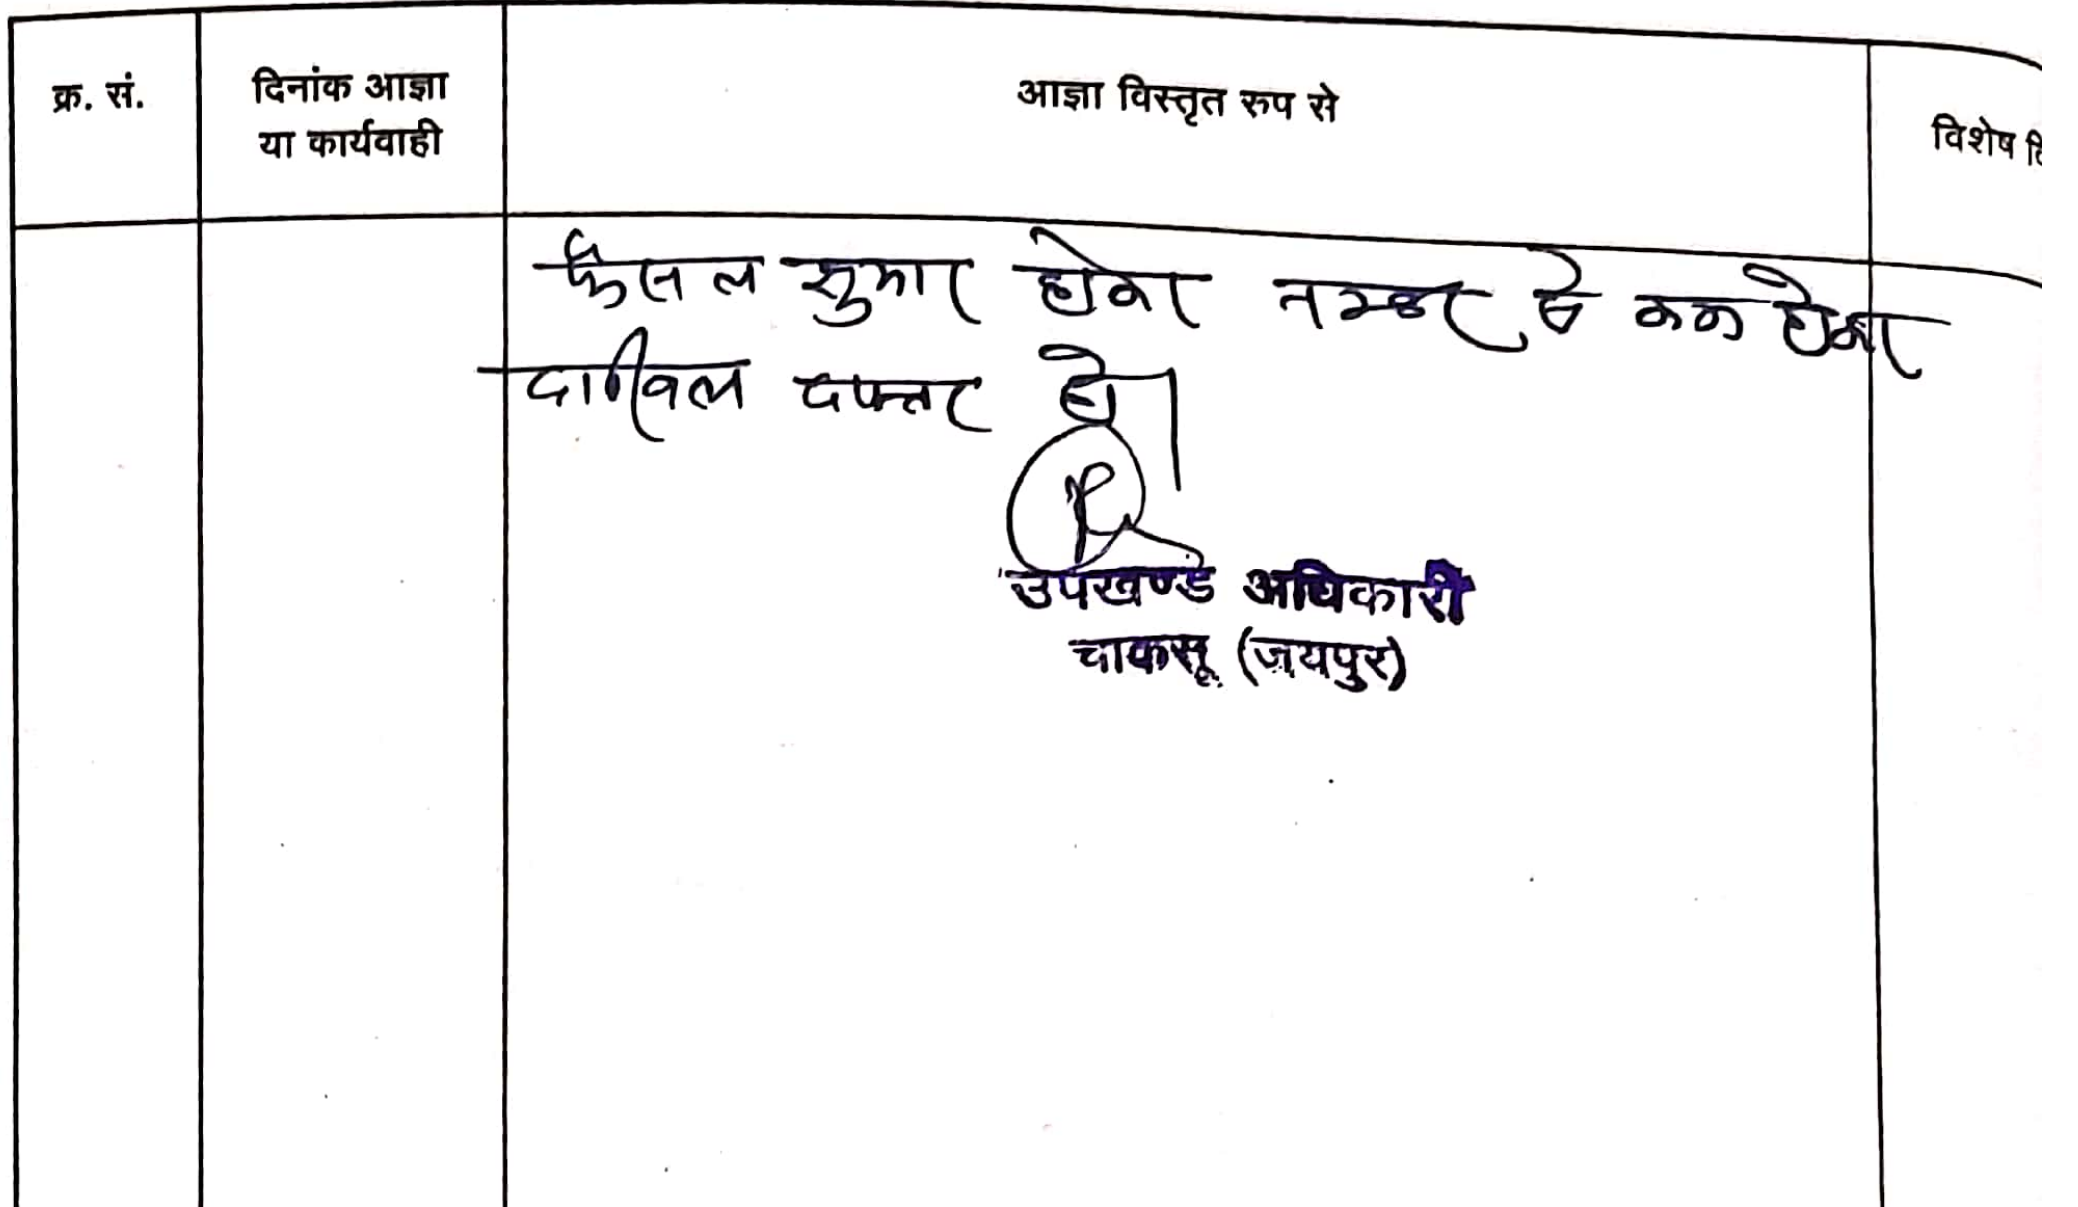 क्र. सं.
दिनांक आज्ञा
या कार्यवाही
आज्ञा विस्तृत रुप से
विशेष
फैसल सुमार होकर नम्बर से कम होकर
दाखिल दफ्तर हो।
उपखण्ड अधिकारी
चाकसू (जयपुर)